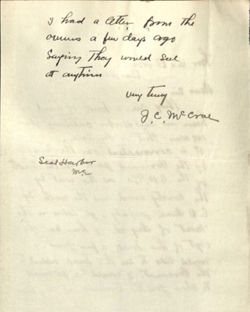 I had a letter from the
owners a few days ago
Saying they would sell
at anytime
very truly
J. C. McCrae
Seal Harbor
Me